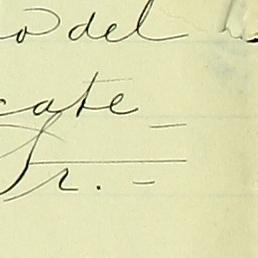 odel
cate
Jr. -